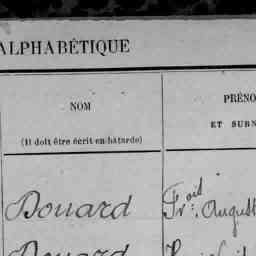 ALPHABÉTIQUE
NOM
(Il doit être écrit en bâtarde)
PRÉNO
ET SURN
Douard
Fr: August
Douard